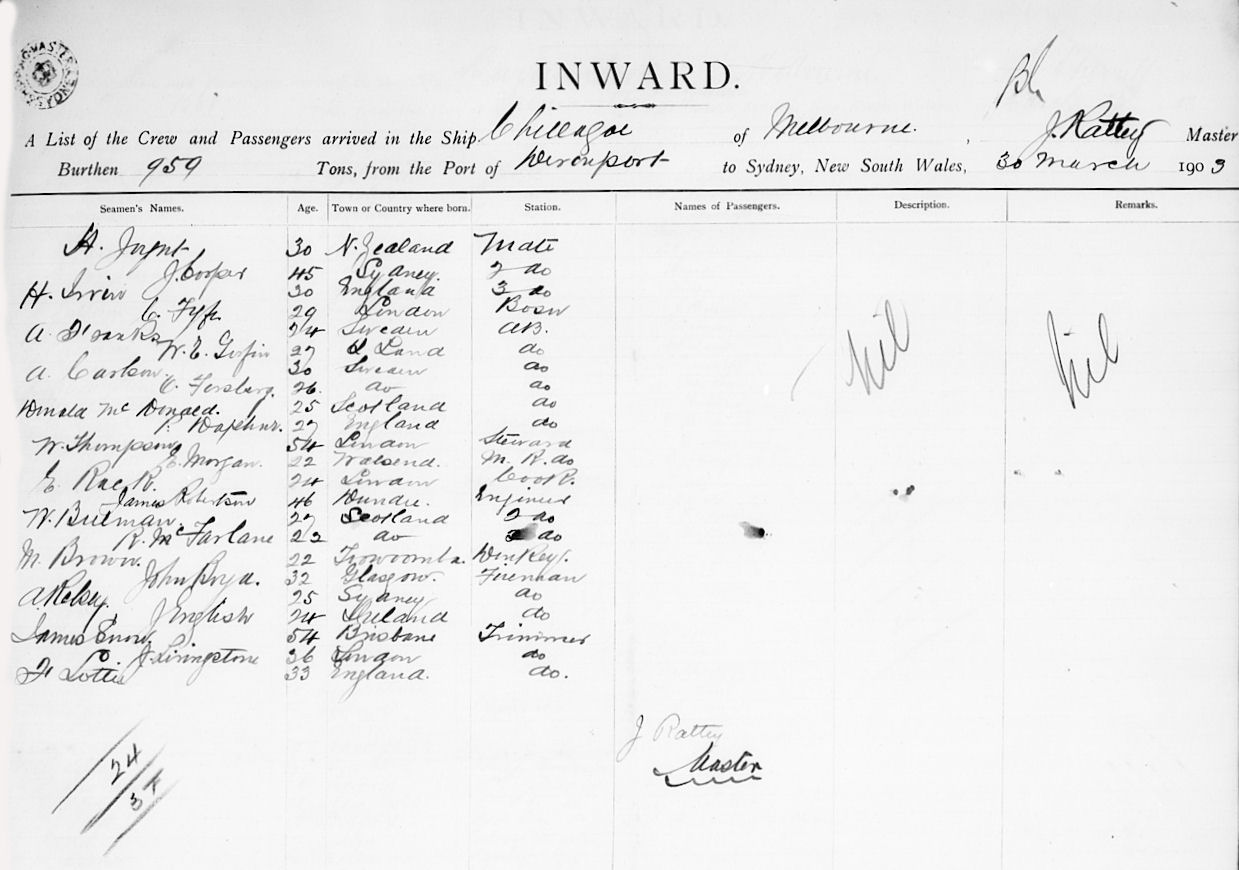 INWARD.
A List of the Crew and Passengers arrived in the Ship Chillagoe of Melbourne. , J. Rattey Master
Burthen 959 Tons, from the Port of Devonport to Sydney, New South Wales, 30 March 1903
Seamen's Names. Age. Town or Country where born. Station. Names of Passengers. Description. Remarks.
H. Joynt 30 N. Zealand Mate
J. Cooper 45 Sydney. 2 do
H. Irvin 30 England 3 do
C. Fyfe 29 London Bosn
A. Franks 24 Sweden AB.
W. E. 27 do
A. Carlson 30 Sweden do
C. Forsberg. 26. do do
Donald Mc Donald. 25 Scotland do
27 England do
W. Thompson 54 London Steward
E. Morgan. 22 Walsend. M. R. do
E. 24 London Cook.
James Robertson 46 Dundee. Engineer
W. Bulman. 27 Scotland 2 do
R. McFarlane 22 do 3 do
M. Brown. 22 Toowoomba. Donkey.
John Boyd. 32 Glasgow. Fireman
A. Kelsey. 25 Sydney do
J. English 24 Ireland do
James Snow. 54 Brisbane Trimmer
J. Livingstone 36 London do
F Lottie 33 England. do.
Nil Nil
J Rattey
Master
24